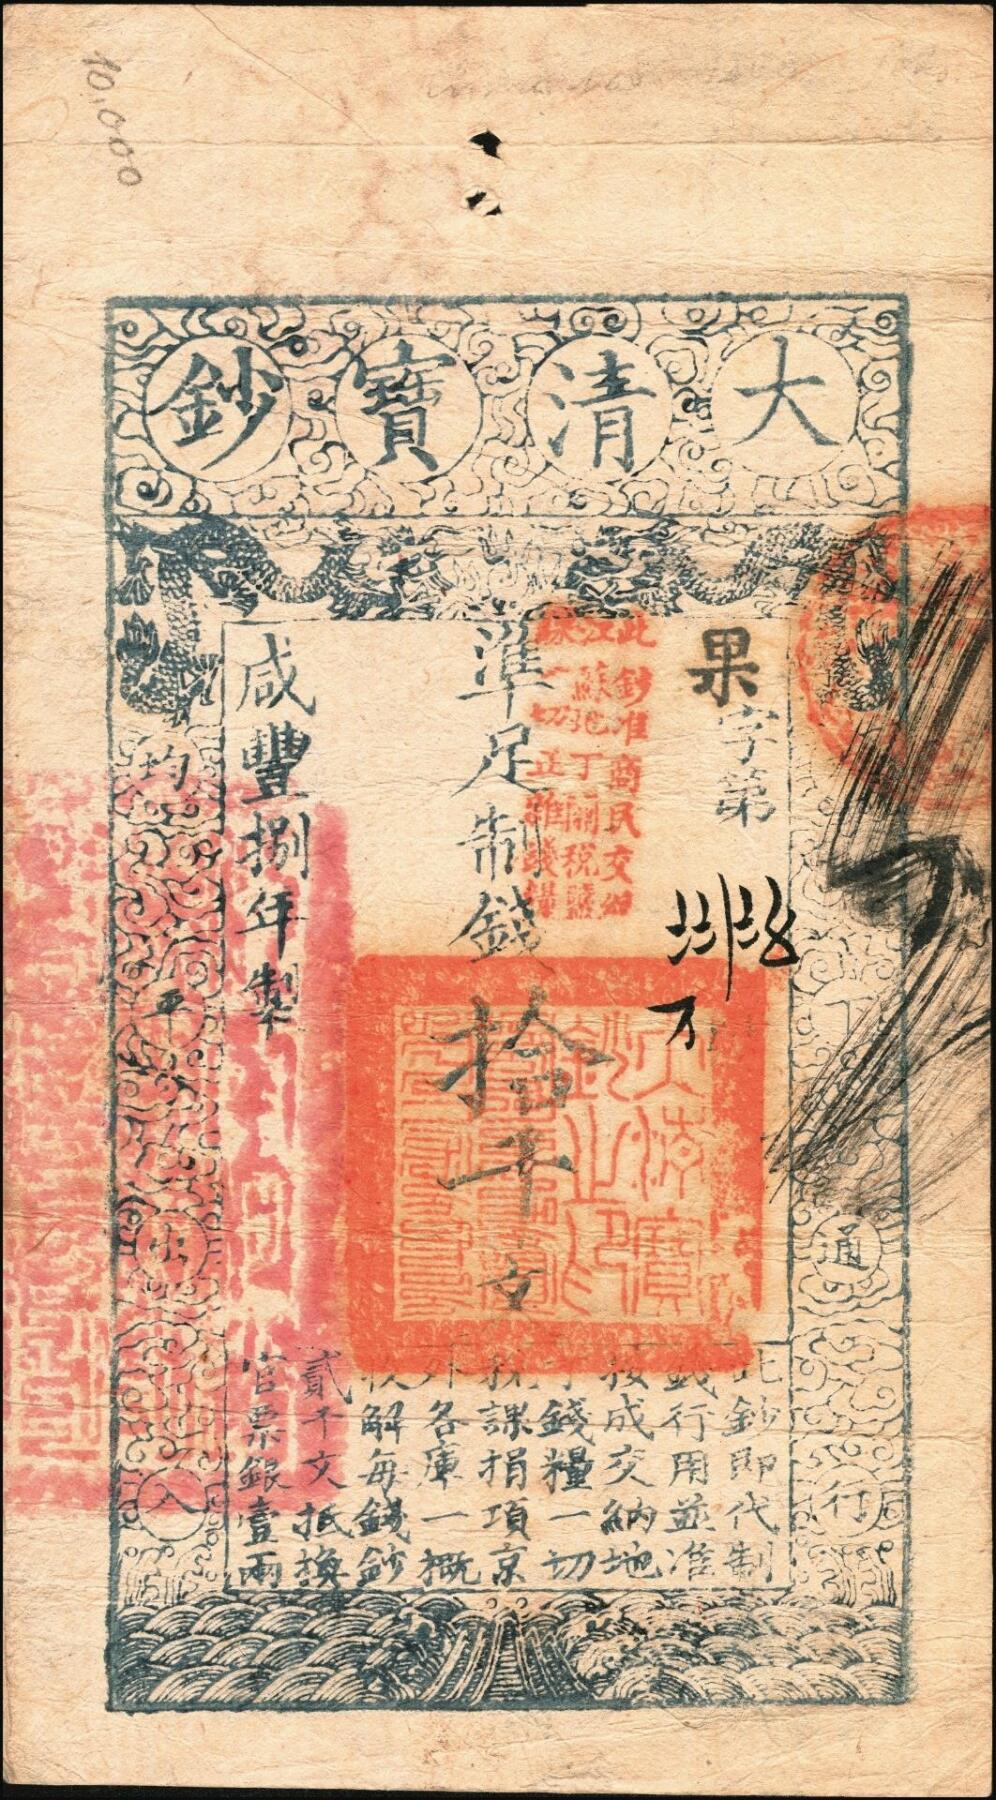 10,000
大清寶鈔
果字第
準足制錢拾千文
咸豐捌年製
此鈔准商民交納
江蘇地丁關稅鹽
課一切正雜錢糧
大清寶鈔之印
天下通行
均平出入
此鈔即代制
錢行用並准
按成交納地
丁錢糧一切
稅課捐項京
外各庫一概
收解每錢鈔
貳千文抵換
官票銀壹兩